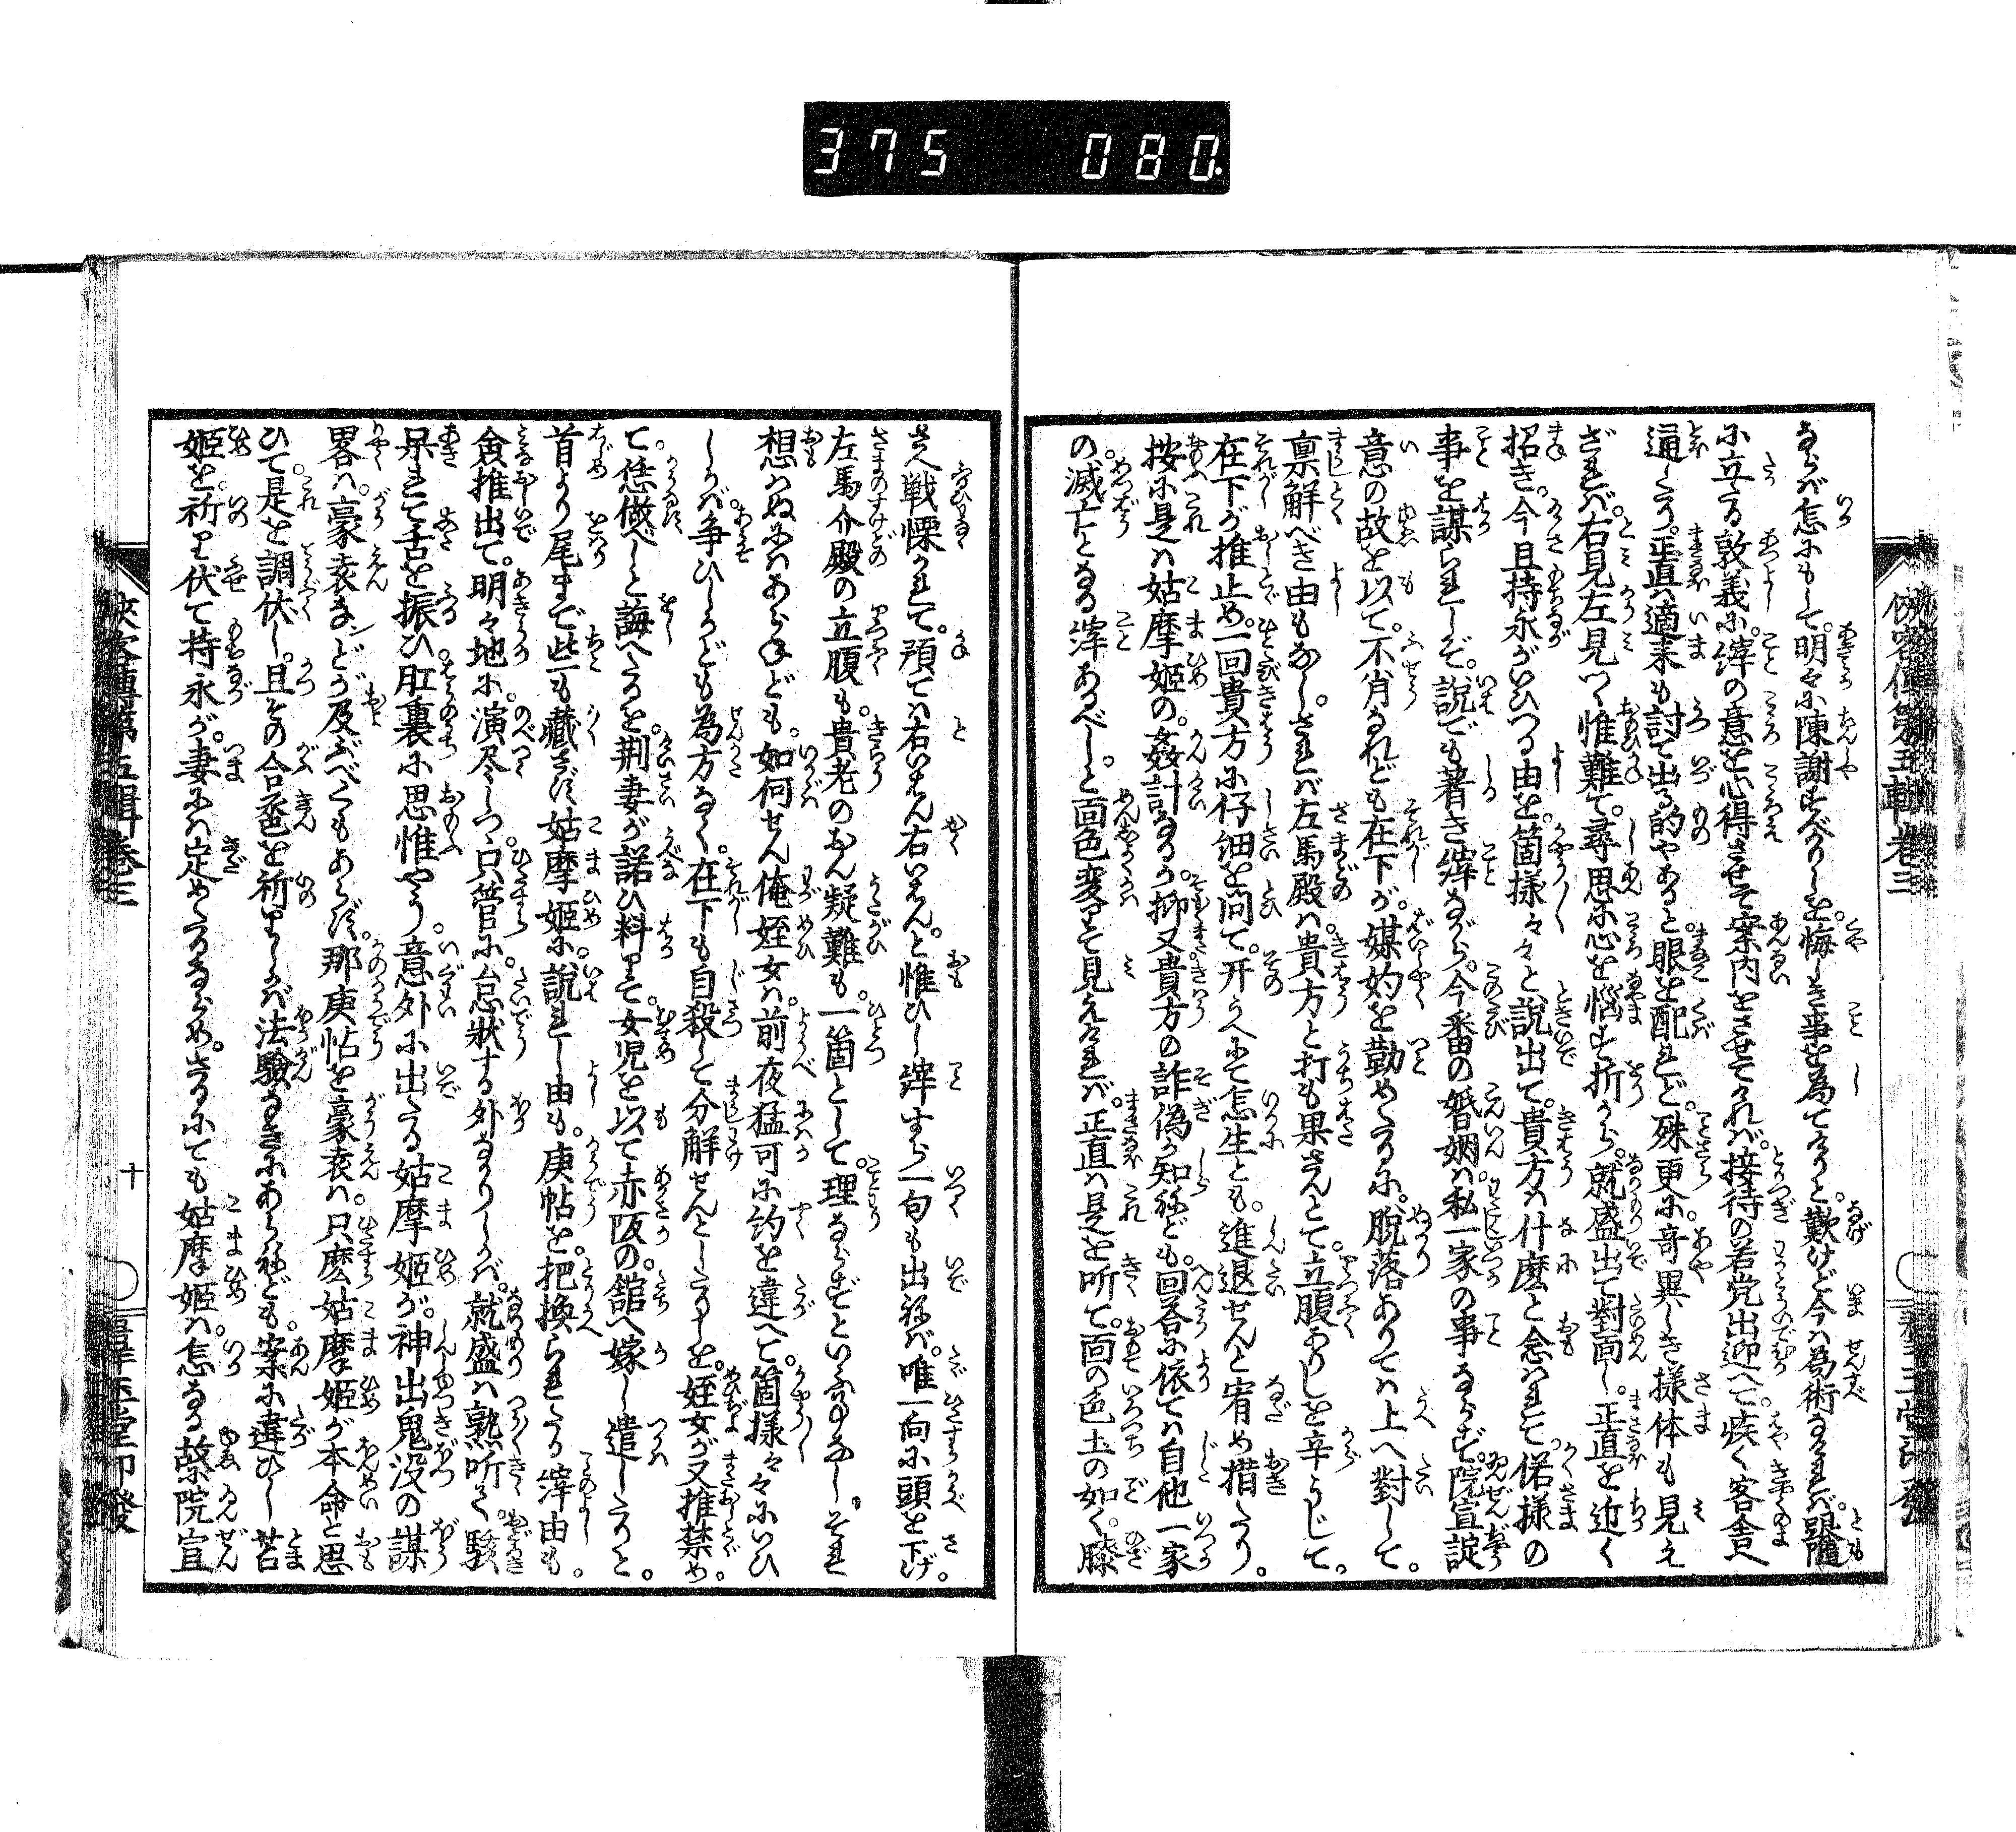 375 080.
俠客傳第五輯卷三
ならバ怎にもして。明々に陳謝すべかりしを。悔しき事を為てけりと。歎けど今ハ為術なけれバ。跟隨
に立たる敦義に。縡の意を心得させて案内をさせてければ。接待の若党出迎へて。疾く客舎へ
通しけり。正直ハ適来も討て出る的やあると。眼を配れど。殊更に奇異しき様体も見え
ざれバ。右見左見つゝ惟難て。尋思に心を悩ます折から。就盛出て對面し。正直を近く
招き。今且持永がいひつる由を。箇様々々と説出て。貴方ハ什麽と念ハれて。偌様の
事を謀られしぞ。説でも著き縡ながら。今番の婚姻ハ。私一家の事ならず。院宣諚
意の故を以て。不肖なれども在下が。媒妁を勤めたるに。脱落ありてハ上へ對して。
禀解べき由もなし。されバ左馬殿ハ。貴方と打も果さんとて。立腹ありしを辛うじて。
在下が推止め。一回貴方に仔細を問て。开うへにて怎生とも。進退せんと宥め措たり。
按に是ハ姑摩姫の。姦計なる歟。抑又貴方の詐偽歟知ねども。回答に依てハ自他一家
の。滅亡となる縡あるべし。と面色変りて見えけれバ。正直ハ是を听て。面の色土の如く。膝
さへ戦慄かれて。預てハ右いはん右いはん。と惟ひし縡すら一句も出ねバ。唯一向に頭を下げ。
左馬介殿の立腹も。貴老のおん疑難も。一箇として。理ならずといふものなし。それ
想ハぬにハあらねども。如何せん俺姪女ハ。前夜猛可に約を違へて。箇様々々にいひ
しかバ。争ひしかども為方なく。在下も自殺して分解せんとしたりしを。姪女が又推禁め。
て。恁做べしと誨へたるを。荆妻が諾ひ料りて。女児を以て赤阪の。舘へ嫁し遣したりと。
首より尾まで些も藏さず。姑摩姫に。説れし由も。庚帖を。把換られたる縡由も。
僉推出て。明々地に。演尽しつゝ。只管に。怠状する外なかりしかバ。就盛ハ熟听て。駭
呆れて舌を振ひ。肚裏に思惟やう。意外に出たる姑摩姫が。神出鬼没の謀
畧ハ。豪袁なンどが及ぶべくもあらず。那庚帖を豪袁ハ。只麽姑摩姫が本命と思
ひて。是を調伏し。且その合巹を祈りしかバ法驗なきにあらねども。案に違ひし苫
姫を。祈り伏て持永が。妻にハ定めたるならめ。さるにても姑摩姫ハ。怎なる故に院宣
俠客傳第五輯卷三
十
群玉堂印發